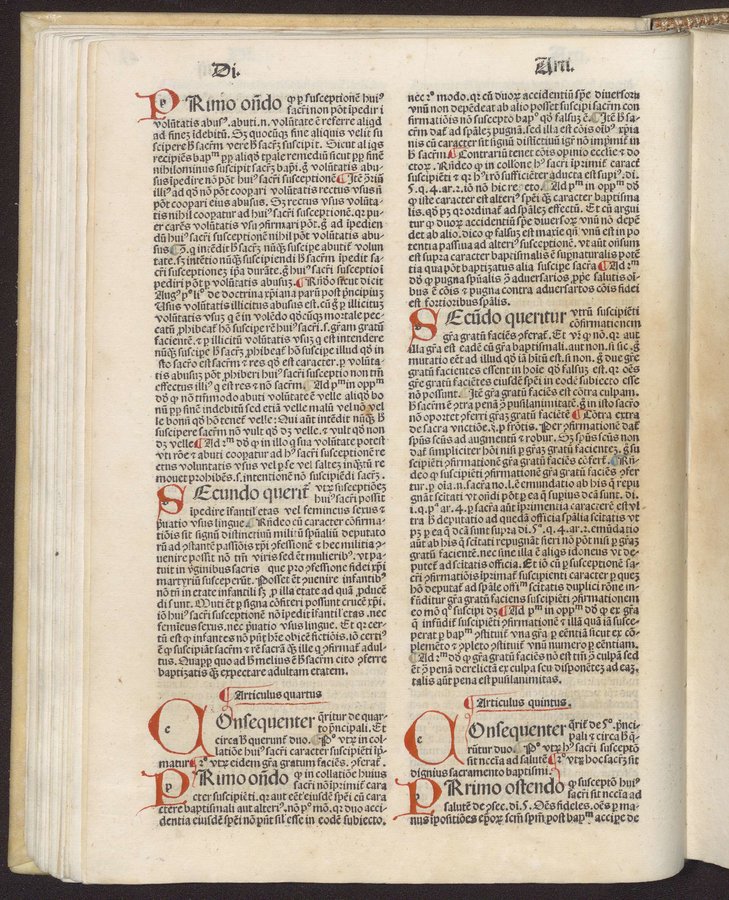 Di.
PRimo oñdo ꝙ ꝑ susceptionē hui⁹
sacri non pōt īpedir i
volūtatis abus⁹. abuti.n. volūtate ē referre aliqd
ad finez īdebitū. Sz quocūqꝫ fine aliquis velit su
scipere ħ sacr̄m vere ħ sacr̄z suscipit. Sicut aliqs
recipiēs bapᵐ ꝓp aliqd̄ tꝑale remediū sicut ꝓp finē
nihilominus suscipit sacr̄z bapti. ḡ volūtatis abu-
sus īpedire nō pōt hui⁹ sacri susceptionē ¶ Itē
illi⁹ ad qd̄ nō pōt coopari volūtatis rectus vsus nō
pōt coopari eius abusus. Sz rectus vsus volūta-
tis nihil coopatur ad hui⁹ sacri susceptionē. qꝛ pu-
er carēs volūtatis vsu ꝯfirmari pōt. ḡ ad īpedien
dū hui⁹ sacri susceptionē nihil pōt volūtatis abu-
sus ¶ ꝗ intēdit ħ sacr̄z nūqꝫ suscipe abutit volun
tate. sz intētio nūqꝫ suscipiendi ħ sacr̄m īpedit sa-
cri susceptionez ipsa durāte. ḡ hui⁹ sacri susceptio
īpediri pōt ꝑ volūtatis abusuz. ¶ Rñdeo sicut dicit
Aug⁹ pº liº de doctrina xpiana parū post pncipiuz
Usus volūtatis illicitus abusus est. cū ḡ ꝑ illicituz
volūtatis vsuz ꝗ ē in volēdo qd̄cūqꝫ mortale pec-
catū ꝓhibeat hō suscipere hui⁹ sacri. s. grām gratū
facientē. et ꝑ illicitū volūtatis vsuz ꝗ est intendere
nūqꝫ suscipe ħ sacr̄z ꝓhibeat hō suscipe illud qd̄ in
isto sacro est sacr̄m et res qd̄ est caracter. ꝑ volūta-
tis abusuz pōt ꝓhiberi hui⁹ sacri susceptio non tm̄
effectus illi⁹ ꝗ est res et nō sacr̄m. ¶ Ad pᵐ in oppᵐ
dd̄ ꝙ nō tm̄modo abuti volūtate ē velle aliqd̄ bo
nū ꝓp finē indebitū sed etiā velle malū vel nō vel
le bonū qd̄ hō tenet̄ velle: Qui aūt intēdit nūqꝫ ħ
suscipere sacr̄m nō vult qd̄ dz velle. et vult qd̄ non
dz velle ¶ Ad 2ᵐ dd̄ ꝙ in illo ꝗ sua volūtate potest
vti rōe et abuti coopatur ad hº sacri susceptionē re
ctus voluntatis vsus vel ꝑ se vel saltez inqꝫtū re
mouet prohibēs. s. intentionē nō suscipiēdi sacr̄z.
SEcundo querit̄ vtꝝ susceptiōez
hui⁹ sacri possit
īpedire īfantil̄ etas vel femineus sexus et
ꝓuatio vsus lingue. ¶ Rñdeo cū caracter cōfirma-
tiōis sit signū distinctiuū militū spūaliū deputato
rū ad ꝯstantē passiōis xpi ꝯfessionē et hec militia ꝯ-
uenire possit nō tm̄ viris sed et mulierib⁹. vt pa-
tuit in vginibus sacris que pro ꝯfessione fidei xpi
martyriū susceperūt. Possit et ꝯuenire infantib⁹
nō tn̄ in etate infantili sz ꝓ illa etate ad quā ꝓduce
di sunt. Muti et ꝑ signa cōfiteri possunt crucē xpi.
iō hui⁹ sacri susceptionē nō īpedit īfantil̄ etas. nec
femineus sexus. nec ꝓuatio vsus lingue. Et qꝛ cer-
tū est ꝙ infantes nō pūt hr̄e obicē fictiōis. iō certū
ē ꝙ suscipiāt sacr̄m et rē sacrā
tus. Quapp quo ad ħ melius ē ħ sacr̄m cito ꝯferre
baptizatis qꝫ expectare adultam etatem.
¶ Articulus quartus
COnsequenter q̄ritur de quar-
to pncipali. Et
circa ħ querunt̄ duo. ¶ Pº vtꝝ in col
latiōe hui⁹ sacri caracter suscipiēti īpri
matur ¶ 2º vtꝝ eidem gra gratum faciēs. ꝯferat̄.
PRimo oñdo ꝙ in collatiōe huius
sacri nō īprimit̄ cara
cter suscipiēti. qꝛ aut eēt eiusdē spēi cū cara
ctere baptismali aut alteri⁹. nō pº mō. qꝛ duo acci
dentia eiusdē spēi nō pūt sil̄ esse in eodē subiecto.
Arti.
nec 2º modo. qꝛ cū duoꝝ accidentiū spē diuersoꝝ
vnū non depēdeat ab alio posset suscipi sacr̄m con
firmatiōis nō suscepto bapº qd̄ falsuz ē. ¶ Itē ħ sa-
cr̄m dat̄ ad spālez pugnā. sed illa est cōis oīb⁹ xpia
nis cū caracter sit signū distīctiuū igit̄ nō imprimit̄ in
ħ sacr̄m ¶ Contrariū tenet cōis opinio ecclie et do
ctoꝝ. ¶ Rñdeo ꝙ in collone hº sacri īprimit̄ caract̄
suscipiēti et qꝛ hº rō sufficiēter aducta est supiº. di.
5. q. 4. ar. 2. iō nō hic repeto. ¶ Ad pᵐ in oppᵐ dd̄
ꝙ iste caracter est alteri⁹ spēi qꝫ caracter baptisma
lis. qd̄ pꝫ qꝛ ordinat̄ ad spālez effectū. Et cū argui
tur ꝙ duoꝝ accidentiū spē diuersoꝝ vnū nō depē
det ab alio. dico ꝙ falsuz est maxie qñ vnū est in po
tentia passiua ad alteri⁹ susceptionē. vt aūt oñsum
est supra caracter baptismalē ē supnaturalis potē
tia qua pōt baptizatus alia suscipe sacra ¶ Ad 2ᵐ
dd̄ ꝙ pugna spūalis ꝯ aduersarios ꝓpe salutis oī
bus ē cōis et pugna contra aduersarios cōis fidei
est fortioribus spālis.
SEcūdo queritur vtrū suscipiēti
cōfirmationem
gra gratū faciēs ꝯferat̄. Et vr̄ ꝙ nō. qꝛ aut
illa gra est eadē cū gra baptismali. aut non. si sic. ḡ
mutatio eēt ad illud qd̄ iā hitū est. si non. ḡ due gre
gratū facientes essent in hoīe qd̄ falsuz est. qꝛ oēs
gre gratū faciētes eiusdē spēi in eodē subiecto esse
nō possunt. ¶ Itē gra gratū faciēs est cōtra culpam.
ħ sacr̄m ē ꝯtra penā ꝯ pusilanimitatē. ḡ in isto sacro
nō oportet ꝯferri grāz gratū faciētē ¶ Cōtra extra
de sacra vnctiōe. ꝫ. p frōtis. Per ꝯfirmationē dat̄
spūs scūs ad augmentū et robur. Sz spūs scūs non
dat̄ simpliciter hōi nisi ꝑ grāz gratū facientez. ḡ su
scipiēti ꝯfirmationē gra gratū faciēs cōfert̄. ¶ Rñ-
deo ꝙ suscipiēti ꝯfirmationē gra gratū faciēs ꝯfer
tur. ꝑ oīa.n. sacra no. l. ē emundatio ab his ꝗ repu
gnāt scitati vt oñdi pōt ꝑ ea ꝗ supius dcā sunt. di.
i. q. pª. ar. 4. ꝑ sacra aūt īprimentia caracterē est vl-
tra ħ deputatio ad quedā officia spālia scitatis vt
pꝫ ꝑ ea ꝗ dcā sunt supra di. 5ª. q. 4. ar. 2. emūdatio
aūt ab his ꝗ scitati repugnāt fieri nō pōt nisi ꝑ grāz
gratū facientē. nec sine illa ē aliqs idoneus vt de-
putet̄ ad scitatis officia. Et iō cū ꝑ susceptionē sa-
cri ꝯfirmatiōis īprimat̄ suscipienti caracter ꝑ quez
hō deputat̄ ad spāle offiᵐ scitatis duplici rōne in-
fūditur gra gratū faciens suscipiēti ꝯfirmationem
eo mō qº suscipi dz ¶ Ad pᵐ in oppᵐ dd̄ ꝙ ex gra
ꝗ infūdit̄ suscipiēti ꝯfirmationē et illā quā iā susce-
perat ꝑ bapᵐ ꝯstituit̄ vna gra. ꝑ eēntiā sicut ex cō-
plemēto et ꝯpleto ꝯstituit̄ vnū numero ꝑ eēntiam.
¶ Ad 2ᵐ dd̄ ꝙ gra gratū faciēs nō est tm̄ ꝯ culpā sed
et ꝯ penā derelictā ex culpa seu disponētez ad eaz.
talis aūt pena est pusilanimitas.
¶ Articulus quintus.
COnsequenter q̄rit̄ de 5º. pnci-
pali et circa ħ q̄-
rūtur duo. ¶ Pº vtꝝ hº sacri susceptō
sit nccīa ad salutē ¶ 2º vtꝝ hoc sacr̄z sit
dignius sacramento baptismi.
PRimo ostendo ꝙ susceptō hui⁹
sacri sit nccīa ad
salutē de ꝯsec. di. 5. Oēs fideles. oēs ꝑ ma-
nus īpositiōēs epōꝝ scm̄ spm̄ post bapᵐ accipe de